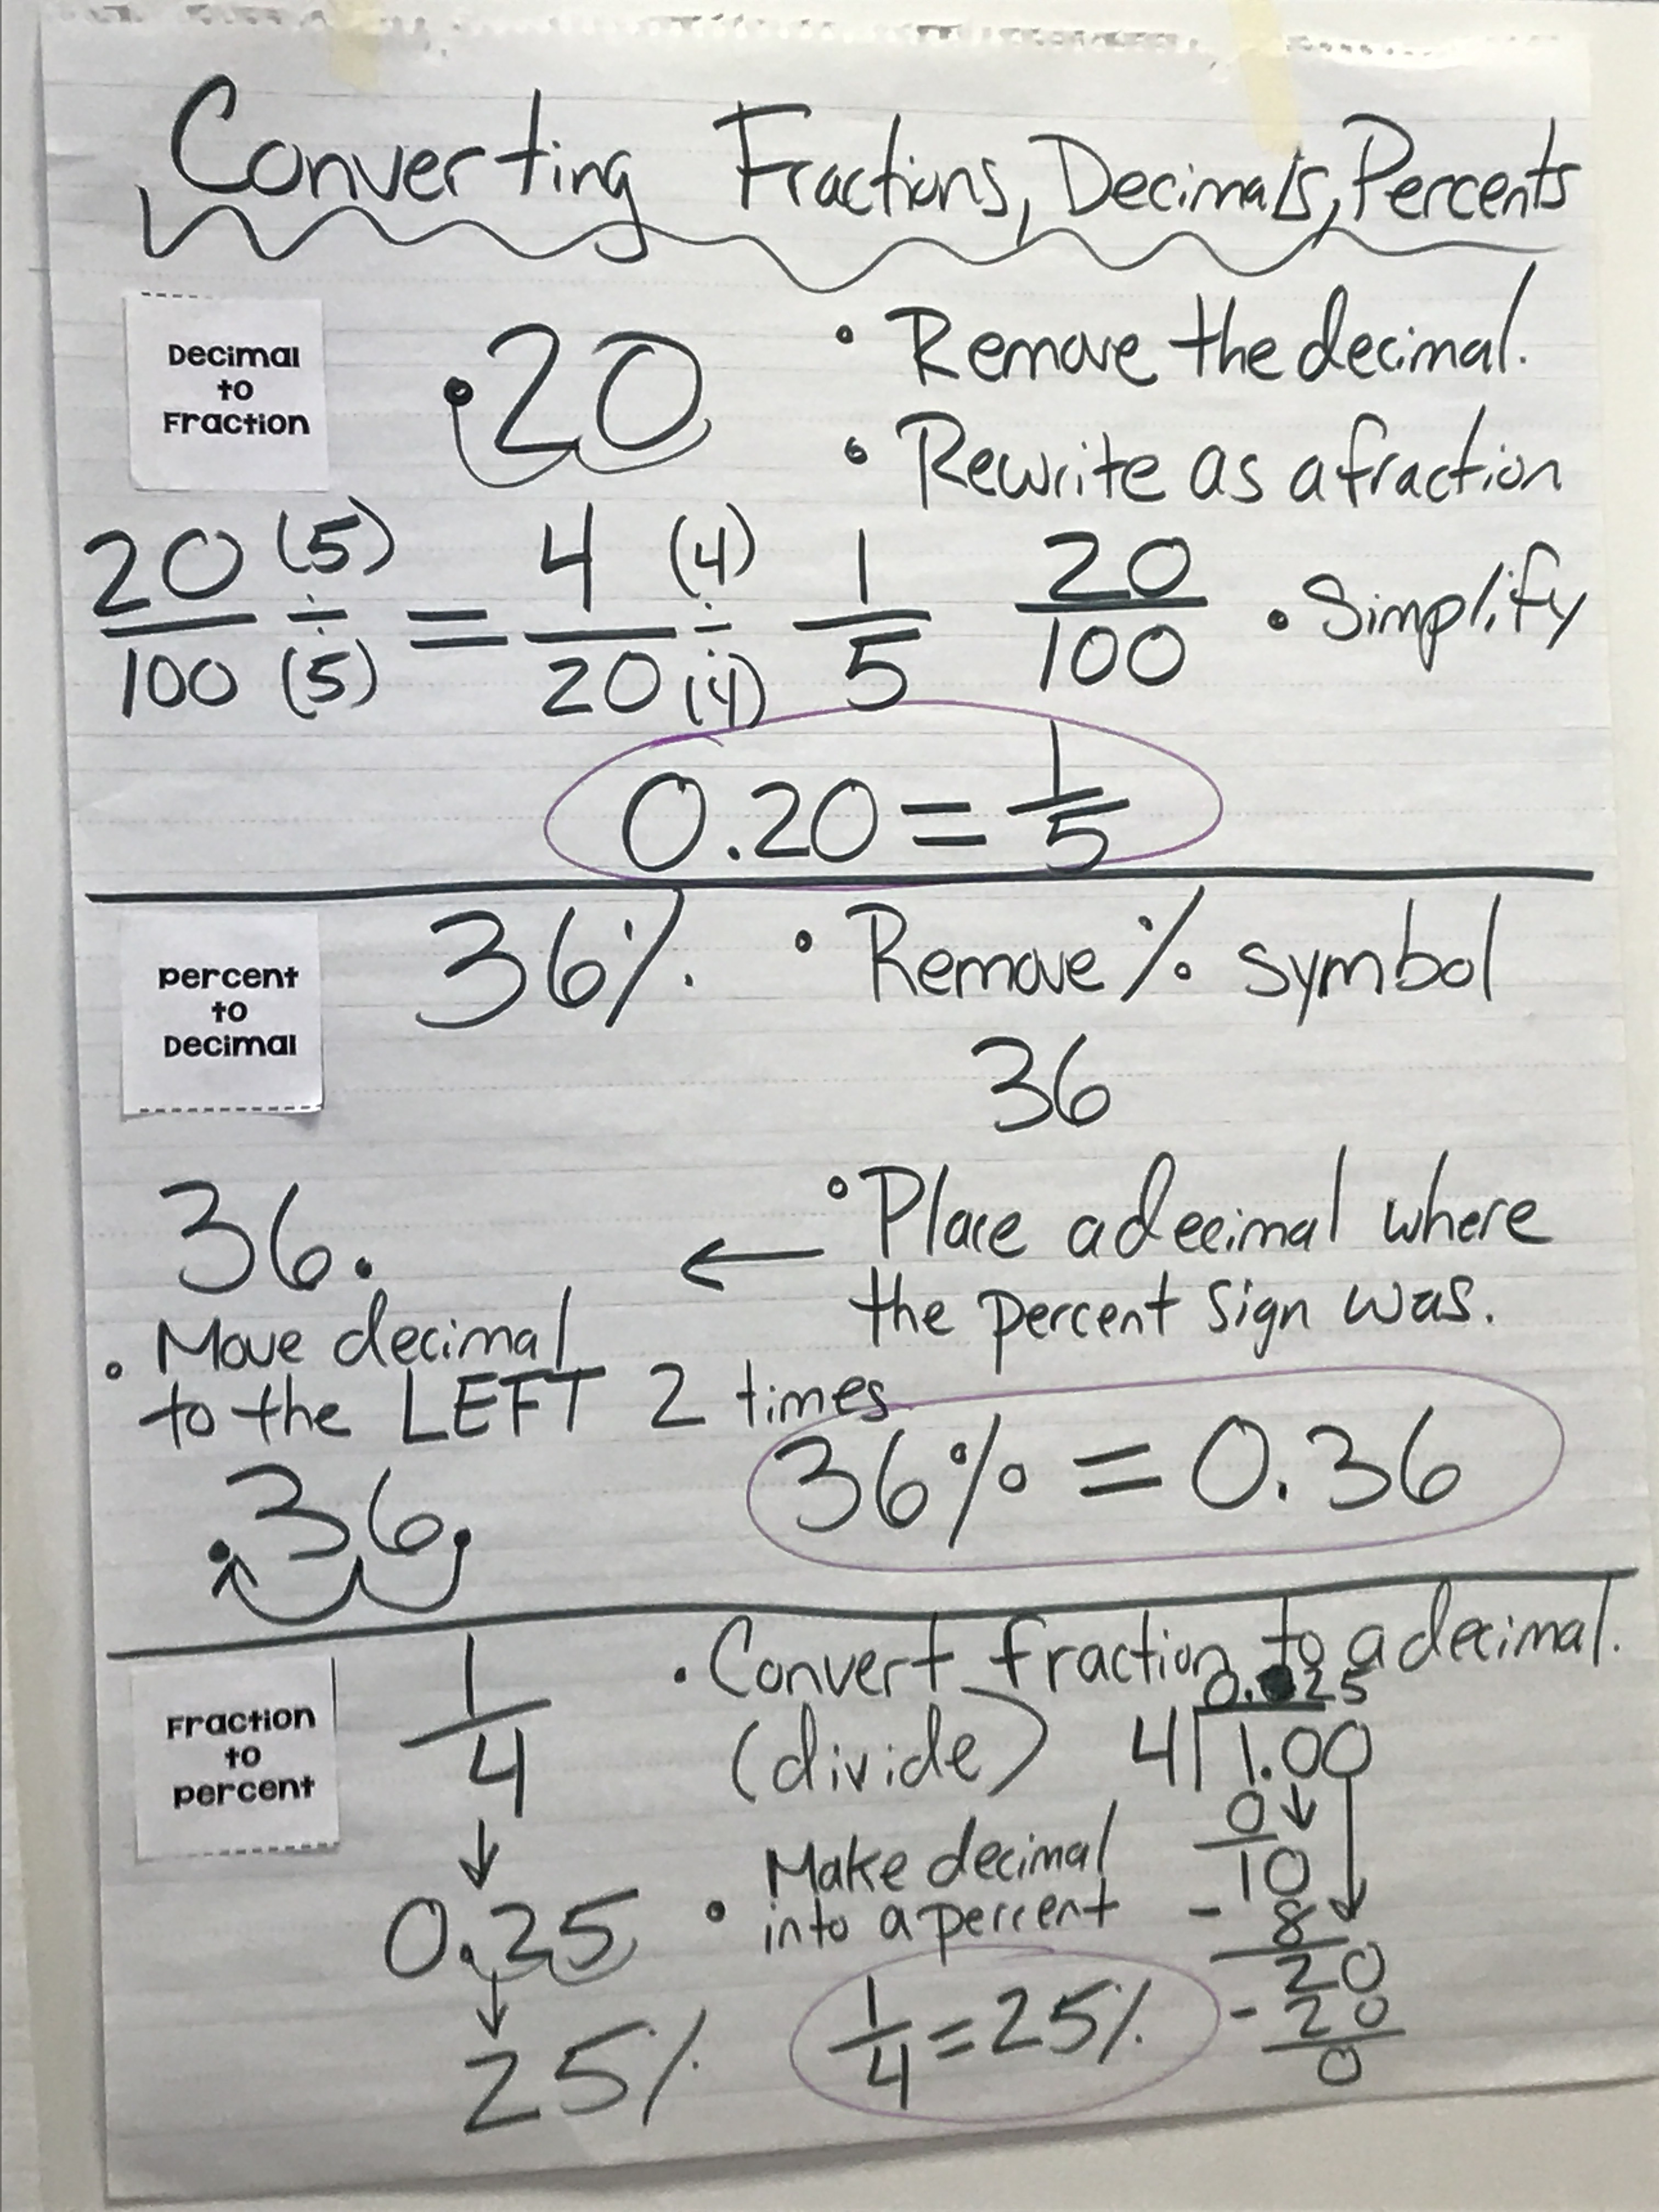 Converting Fractions, Decimals, Percents
Decimal
to
Fraction
.20
• Remove the decimal.
• Rewrite as a fraction
20/100 ÷ (5)/(5) = 4/20 ÷ (4)/(4) 1/5
20/100
• Simplify
0.20 = 1/5
percent
to
Decimal
36%
• Remove % symbol
36
• Place a decimal where
the percent sign was.
←
36.
• Move decimal
to the LEFT 2 times
.36.
36% = 0.36
Fraction
to
percent
1/4
↓
0.25
↓
25%
• Convert fraction to a decimal.
(divide)
0.25
4 1.00
0
10
- 8
20
- 20
0
• Make decimal
into a percent
1/4 = 25%